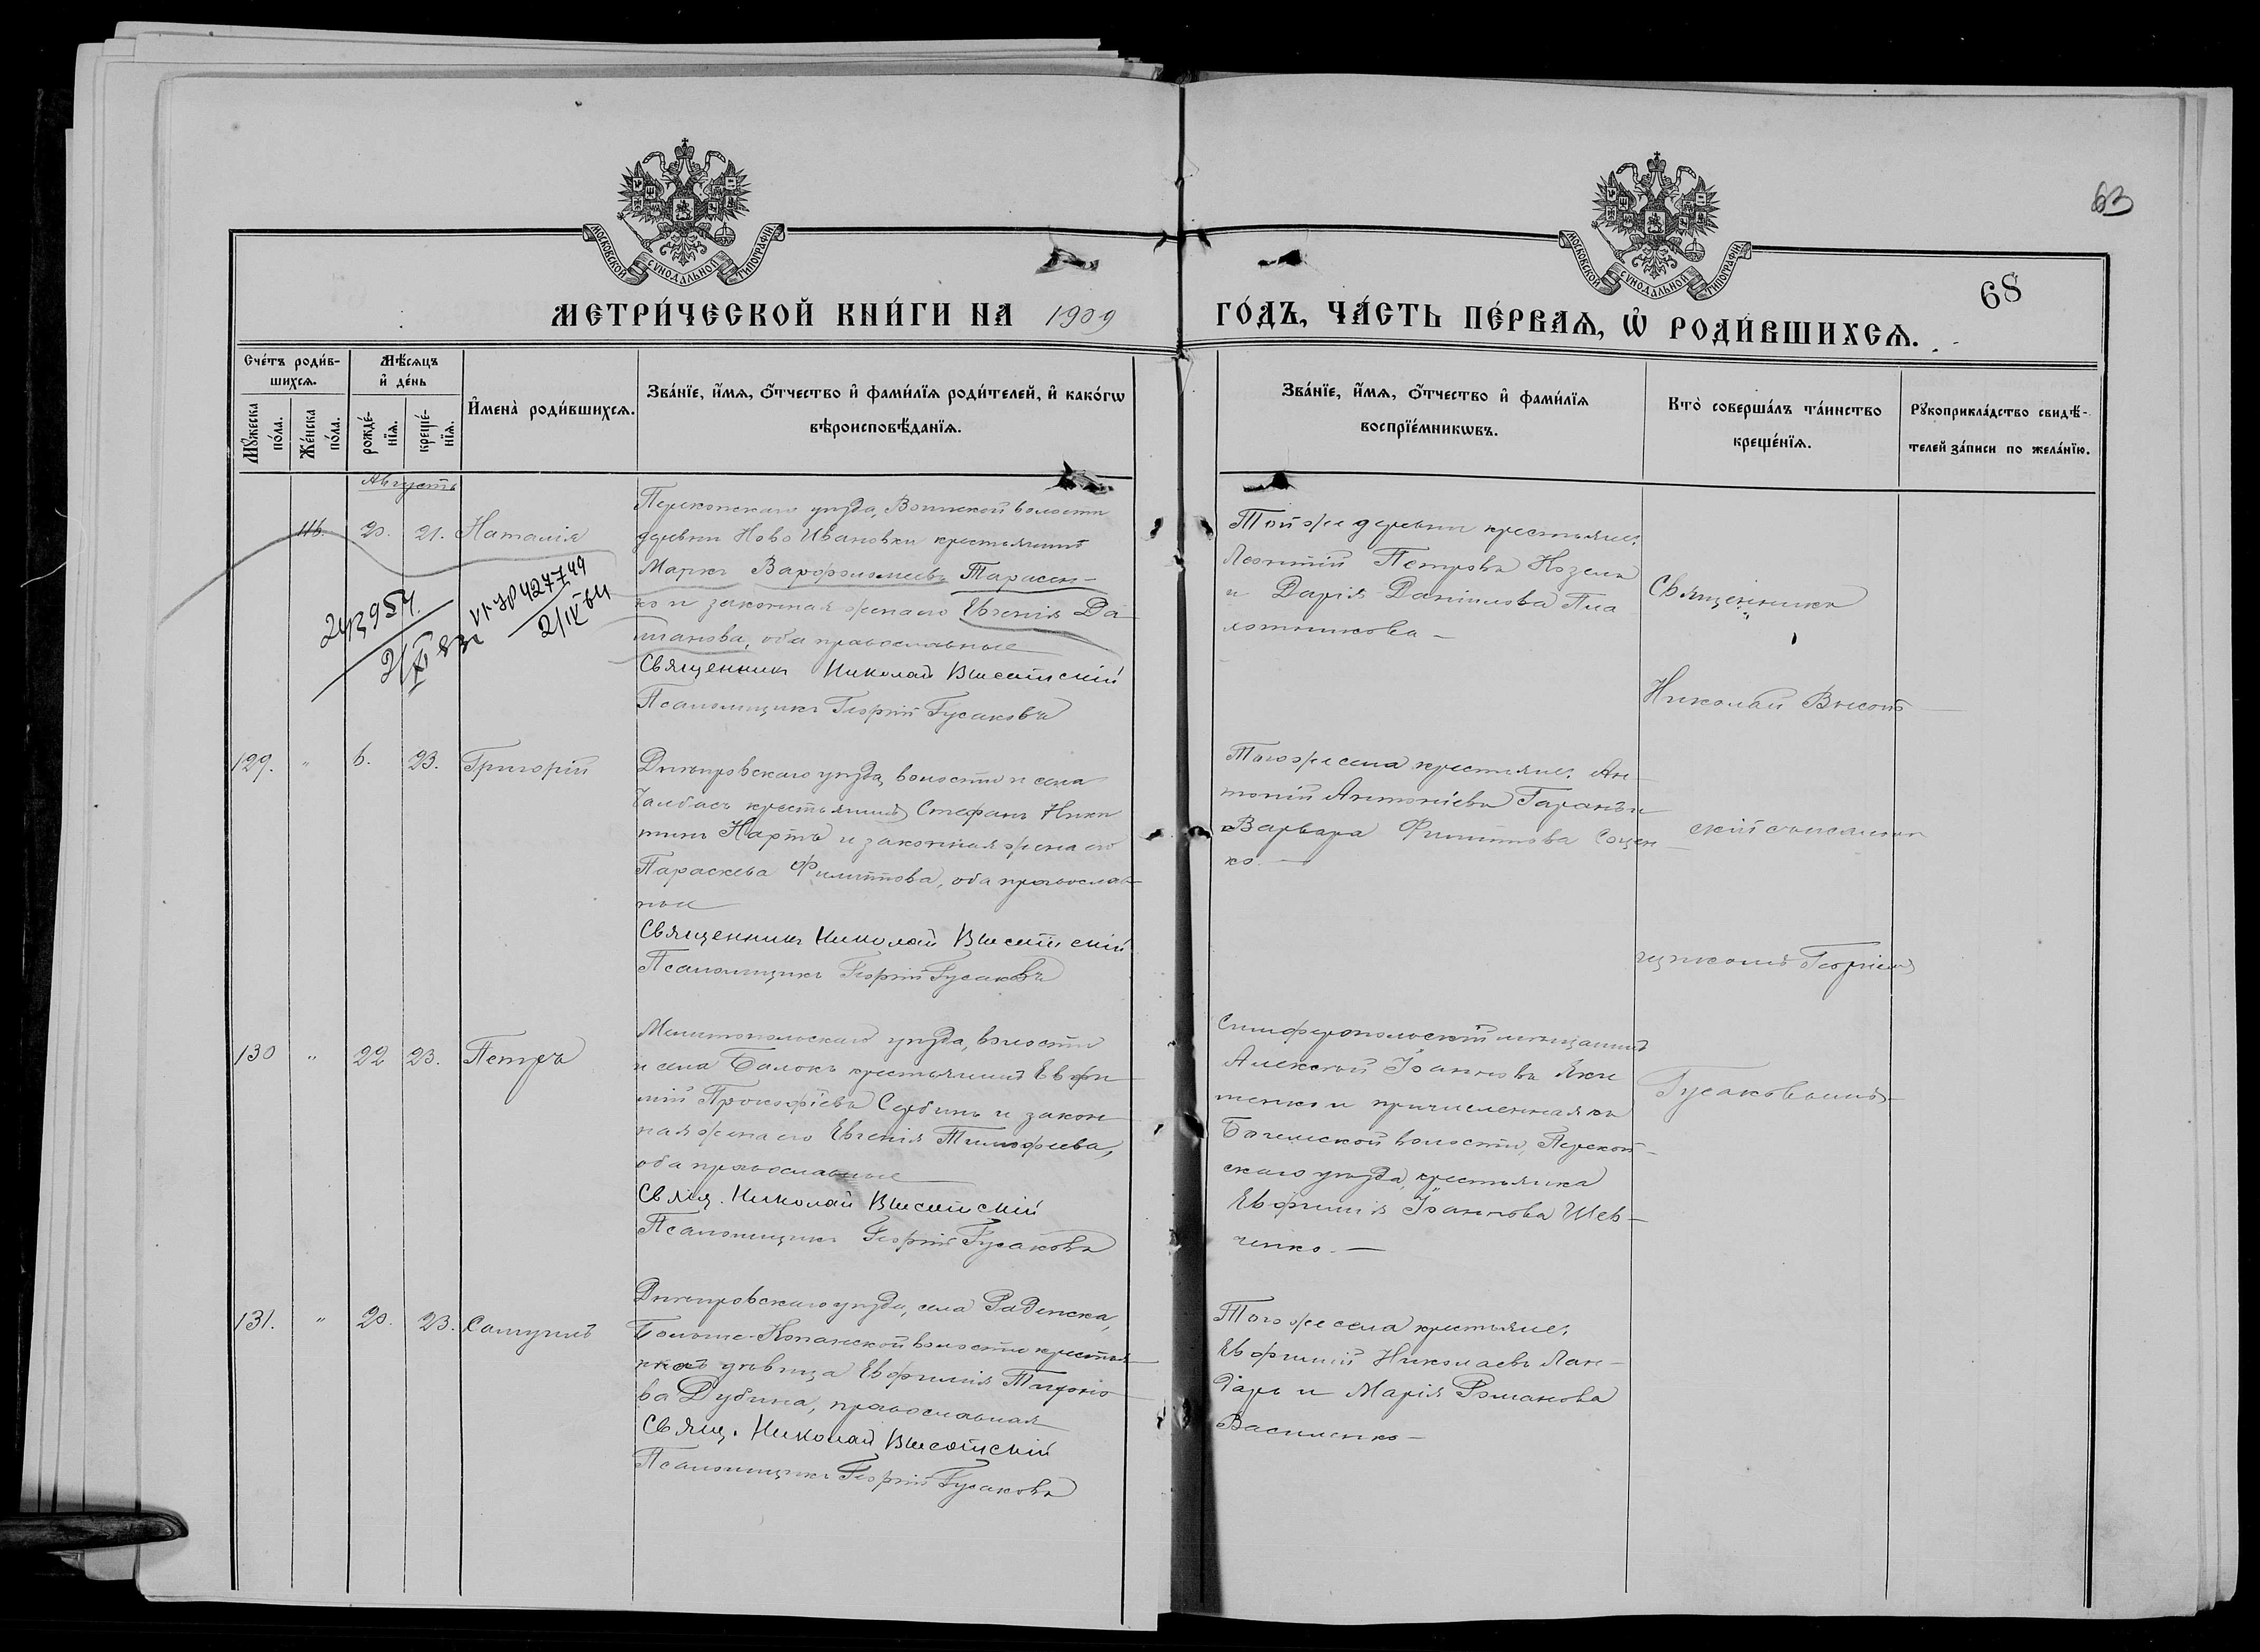 63
68
МОСКОВСКОЙ СѴНОДАЛЬНОЙ ТИПОГРАФІИ
МОСКОВСКОЙ СѴНОДАЛЬНОЙ ТИПОГРАФІИ
МЕТРИ́ЧЕСКОЙ КНИ́ГИ НА 1909
ГО́ДЪ, ЧА́СТЬ ПЕ́РВАЯ, Ѡ҆ РОДИ́ВШИХСЯ.
Сче́тъ роди́в-
шихся.
Мѣ́сяцъ
и҆ де́нь
Мꙋ́жеска
по́ла.
Же́нска
по́ла.
рожде́-
нїя.
креще́-
нїя.
И҆мена̀ роди́вшихся.
Зва́нїе, и҆́мя, ѻ҆́тчество и҆ фами́лїя роди́телей, и҆ како́гѡ
вѣроисповѣ́данїя.
Зва́нїе, и҆́мя, ѻ҆́тчество и҆ фами́лїя
воспрїе́мникѡвъ.
Кто̀ соверша́лъ та́инство
креще́нїя.
Рꙋкоприкла́дство свидѣ́-
телей за́писи по жела́нїю.
Августъ
116. 20. 21. Наталія
Перекопскаго уѣзда, Воинской волости
деревни Ново Ивановки крестьянинъ
Маркъ Варфоломеевъ Тарасен-
ко и законная жена его Евгенія Да
оба православные
Священникъ Николай Высотскій
Псаломщикъ Георгій Гусаковъ
Той же деревни крестьяне:
Леонтій Петровъ Козелъ
и Дарія Даніилова Пла
хотникова —
Священникъ
Николай Высот
129. " 6. 23. Григорій
Днѣпровскаго уѣзда, волости и села
Чалбасъ крестьянинъ Стефанъ Ники
тинъ Нартъ и законная жена его
Параскева Филиппова, оба православ-
ные
Священникъ Николай Высотскій
Псаломщикъ Георгій Гусаковъ
Того же села крестьяне: Ан-
тоній Антоніевъ Гаранъ и
Варвара Филиппова Соцен
ко. —
скій съ псаломщ
щикомъ Георгіем
130 " 22 23. Петръ
Мелитопольскаго уѣзда, волости
и села Балокъ крестьянинъ Евфи
мій Прокофіевъ Сербинъ и закон
ная жена его Евгенія Тимофеева,
оба православные
Свящ. Николай Высотскій
Псаломщикъ Георгій Гусаковъ
Симферопольскій мѣщанинъ
Алексѣй Іоанновъ Яки
менко и причисленная къ
волости, Перекоп-
скаго уѣзда, крестьянка
Евфимія Іоаннова Шев-
ченко. —
Гусаковымъ
131. " 20. 23. Самуилъ
Днѣпровскаго уѣзда, села Раденска,
Больше-Копанской волости крестья
дѣвица Евфимія
ва Дубина, православная
Свящ. Николай Высотскій
Псаломщикъ Георгій Гусаковъ
Того же села крестьяне:
Евфимій Николаевъ Лан-
дарь и Марія Романова
Василенко —